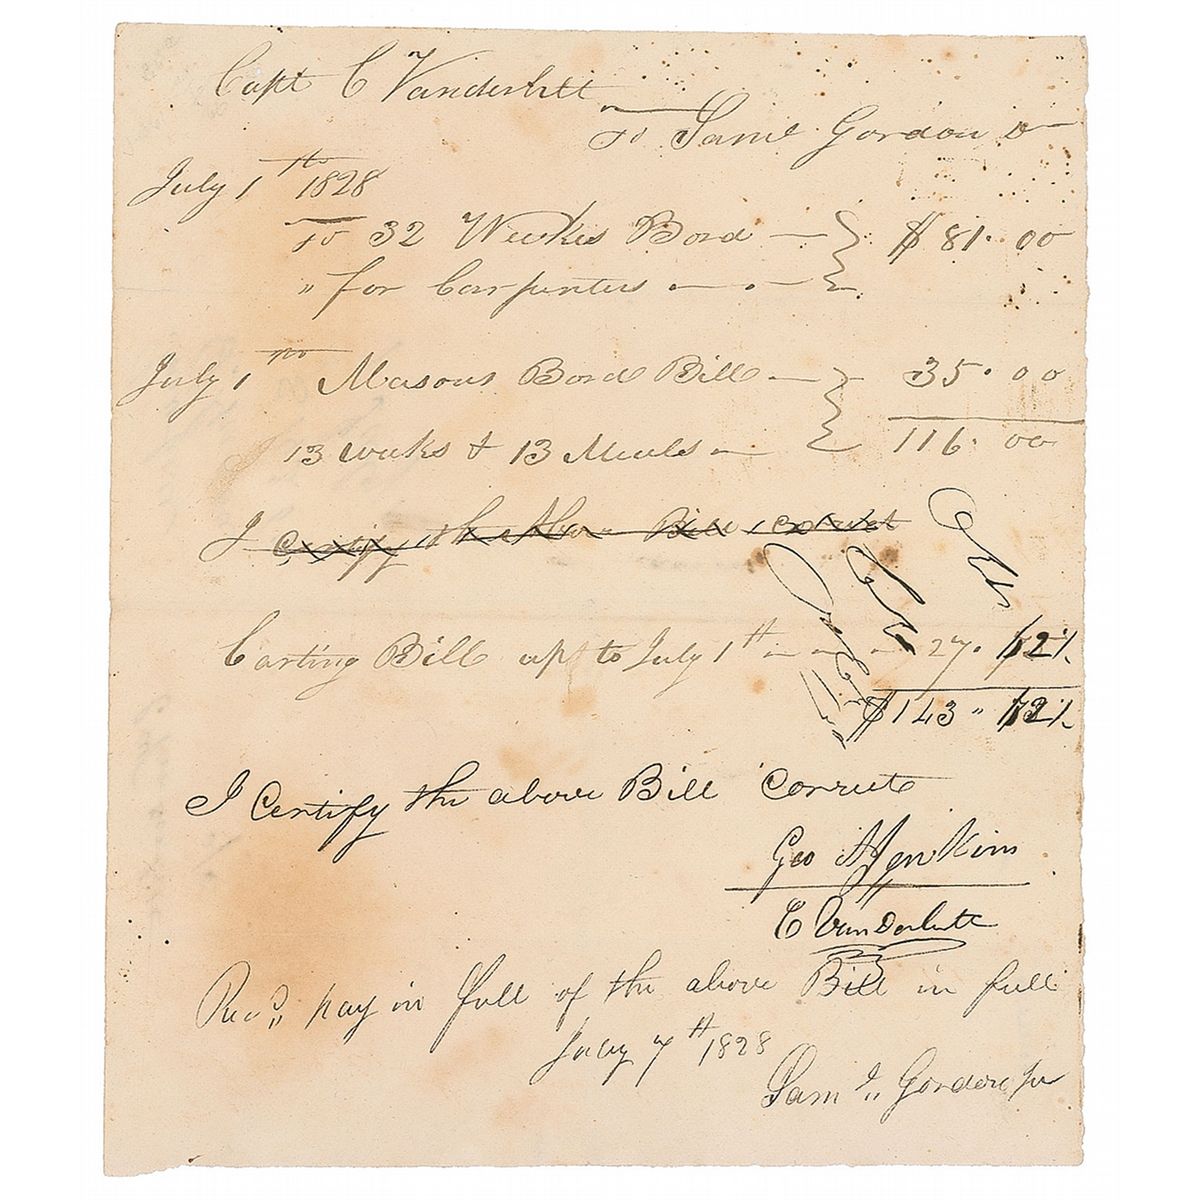 Capt C Vanderbilt
To Saml Gordon Dr
July 1th 1828
To 32 Weekes Bord — $81.00
" for Carpenters
July 1th Masons Bord Bill — 35.00
13 weeks & 13 Meals — 116.00
I Certify the Above Bill Corect
Carting Bill up to July 1th 27. 12½
$143 " 12½
I Certify the above Bill Correct
Geo Jenkins
C Vanderbilt
Recd pay in full of the above Bill in full
July 7th 1828
Saml Gordon Jr